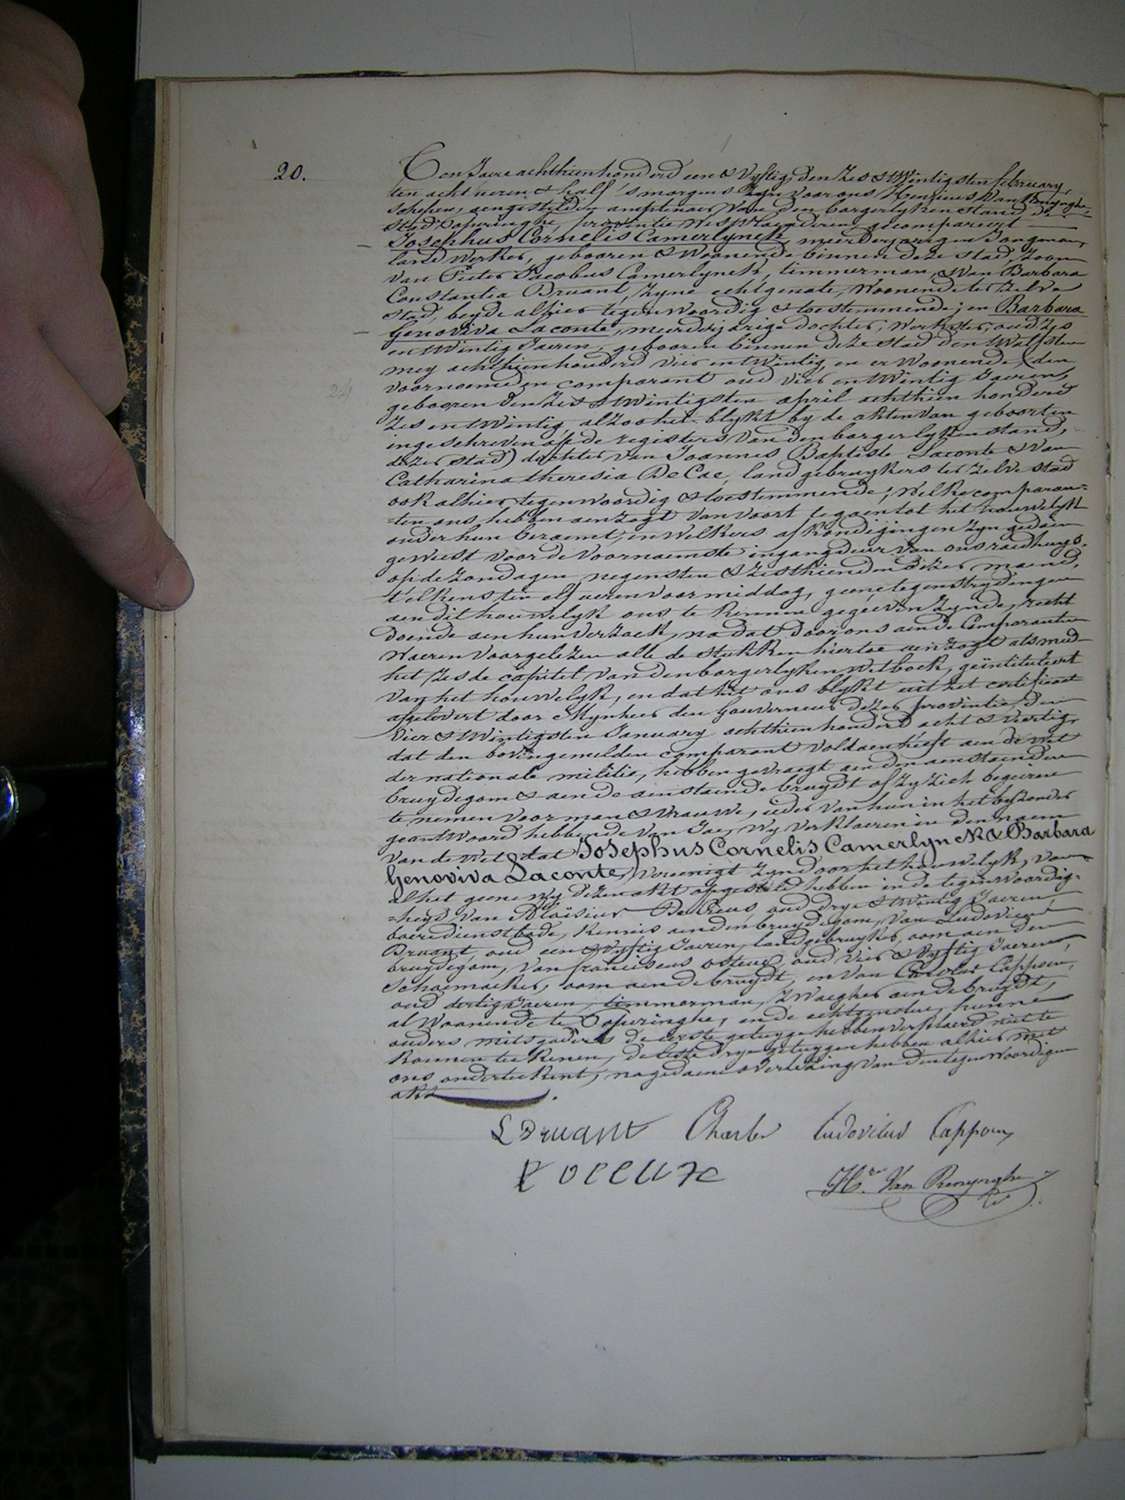 20.
Ten Jaere achthien honderd een & vyftig, den zes & twintigsten february,
ten acht ueren & half 's morgens zyn voor ons Henricus Van Renynghe
schepen, aengestelden amptenaer van den borgerlyken stand der
stad Poperinghe, provintie West Vlaenderen gecompareert
Josephus Cornelis Camerlynck, meerderjarigen Jongman,
landwerker, gebooren & woonende binnen deze stad, zoon
van Pieter Jacobus Camerlynck, timmerman, & van Barbara
Constantia Druant, zyne echtgenote, woonende ter zelve
stad, beyde alhier tegenwoordig & toestemmende; en Barbara
Genoviva Laconte, meerderjarige dochter, werkster, oud zes
en twintig Jaeren, gebooren binnen deze stad den twelfsten
mey achthien honderd vier en twintig en er woonende, (den
voornoemden comparant oud vier en twintig Jaeren,
gebooren den zes & twintigsten april achthien honderd
zes en twintig, alzoo het blykt by de akten van geboorten
ingeschreven op de registers van den borgerlyken stand,
dezer stad) dochter van Joannes Baptiste Laconte & van
Catharina theresia De Cae, landgebruykers ter zelve stad
ook alhier tegenwoordig & toestemmende; welke comparan-
ten ons hebben aenzogt van voort te gaen tot het houwelyk
onder hun beraemt, en welkers afkondigingen zyn gedaen
geweest voor de voornaemste ingangdeur van ons raedhuys,
op de zondagen negensten & zesthienden dezer maend,
telkens ten elf ueren voormiddag, geene tegenstrydingen
aen dit houwelyk ons te kennen gegeven zynde, recht
doende aen hun verzoek, na dat door ons aen de Comparanten
waeren voorgelezen alle de stukken hiertoe aenzogt alsmede
het zesde capitel van den borgerlyken wetboek, geïntituleert
van het houwelyk, en dat het ons blykt uit het certificaet
afgelevert door Mynheer den Gouverneur dezer provintie, den
vier & twintigsten January achthien honderd acht & viertig,
dat den bovengemelden comparant voldaen heeft aen de wet
der nationale militie, hebben gevraegt aen den aenstaenden
bruydegom & aen de aenstaende bruydt of zy zich begeeren
te nemen voor man & vrauwe, ieder van hun in het byzonder
geantwoord hebbende van Jae, wy verklaeren in den naem
van de Wet, dat Josephus Cornelis Camerlynck & Barbara
Genoviva Laconte, vereenigt zyn door het houwelyk, van
al het geene wy dezen akt opgesteld hebben in de tegenwoordig-
heyd van Aloïsius oud drye & twintig Jaeren,
boeredienstbode, kennis aen den bruydegom, van Ludovicus
Druant, oud een & vyftig Jaeren, landgebruyker, oom aen den
bruydegom, van franciscus oud vier & vyftig Jaeren,
Schoemaeker, oom aen de bruydt, en van Carolus Cappoen,
oud dertig Jaeren, timmerman, zwaeger aen de bruydt,
al woonende te Poperinghe, en de echtgenoten, hunne
ouders mitsgaders de eerste getuyge hebben verklaerd niet te
konnen teekenen, de leste drye getuygen hebben alhier met
ons onderteekent, nagedaene overlezing van den tegenwoordigen
akt.
L Druant Charles Ludovicus Cappoen
Hri. Van Renynghe